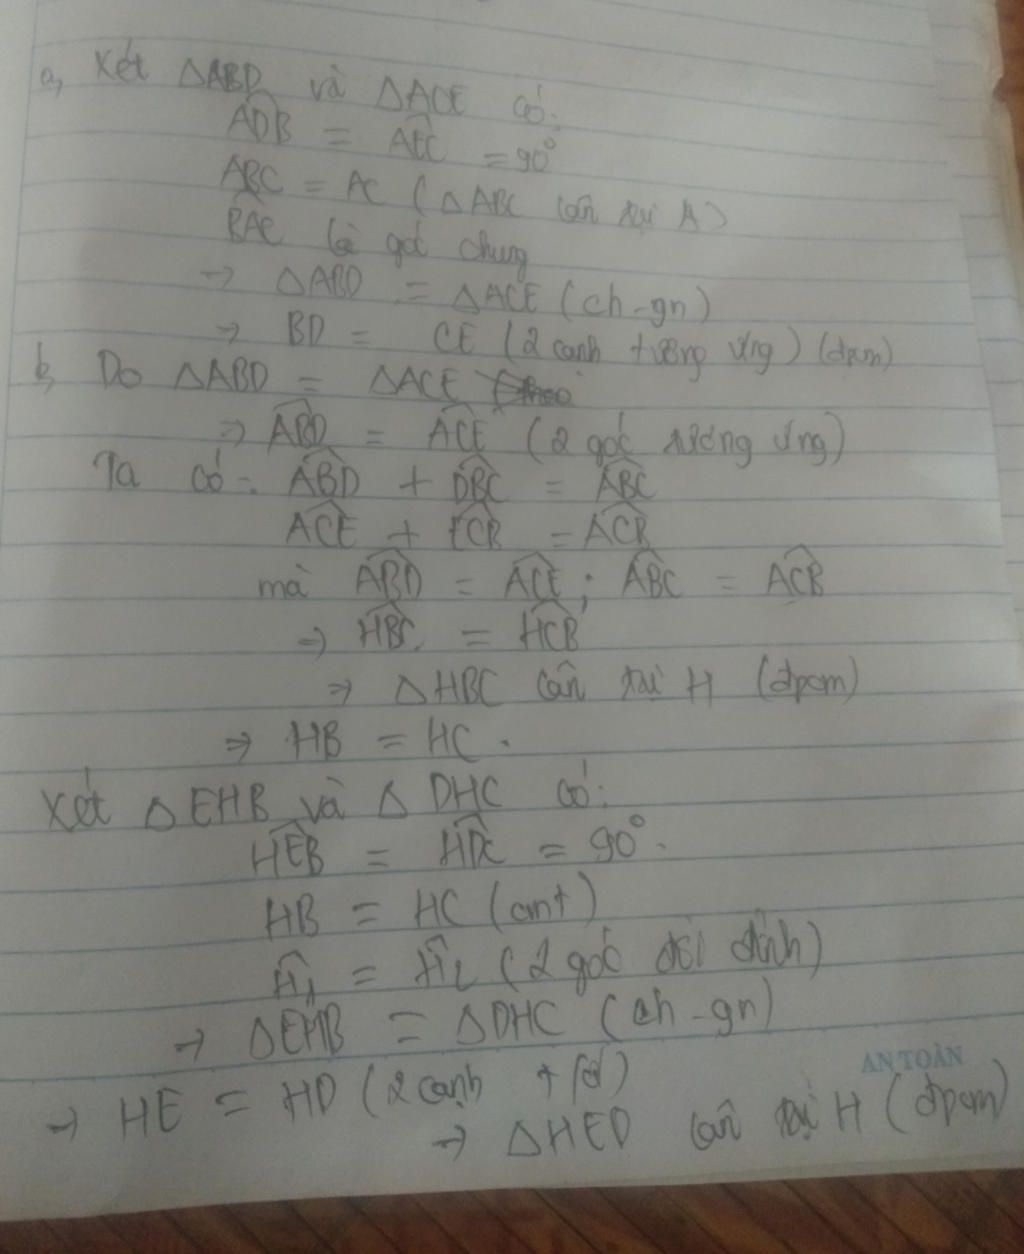 a, Xét △ABD và △ACE có:
ADB = AEC = 90°
ABC = AC (△ABC cân tại A)
BAC là góc chung
→ △ABD = △ACE (ch-gn)
→ BD = CE (2 cạnh tương ứng) (đpcm)
b, Do △ABD = △ACE
⇒ ABD = ACE (2 góc tương ứng)
Ta có: ABD + DBC = ABC
ACE + ECB = ACB
mà ABD = ACE ; ABC = ACB
⇒ HBC = HCB
⇒ △HBC cân tại H (đpcm)
⇒ HB = HC.
Xét △EHB và △DHC có:
HEB = HDC = 90°.
HB = HC (cmt)
H1 = H2 (2 góc đối đỉnh)
→ △EHB = △DHC (ch-gn)
AN TOÀN
→ HE = HD (2 cạnh
→ △HED cân tại H (đpcm)